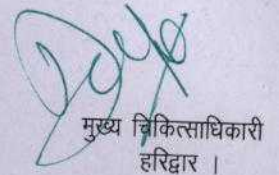 मुख्य चिकित्साधिकारी
हरिद्वार ।